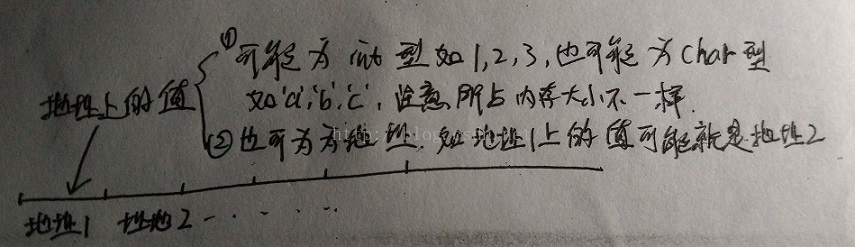 ①可能为 int 型 如 1,2,3,也可能为 char 型
如'a','b','c',注意所占内存大小不一样.
地址上的值
②也可为为地址,如地址1上的值可能就是地址2
地址1 地址2 ......